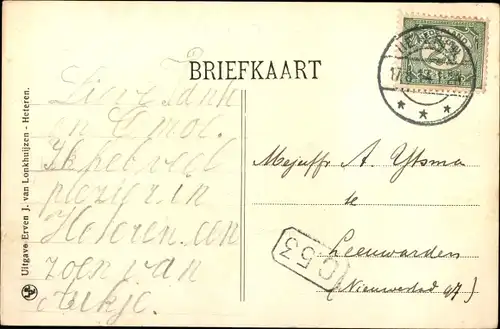 BRIEFKAART
Lieve Tank
en Omoe.
Ik heb veel
plezier in
Heteren. een
zoen van
Aukje.
Mejuffr A. Ytsma
te
Leeuwarden
(Nieuwestad 97)
Uitgave Erven J. van Lonkhuijzen - Heteren.
C 53